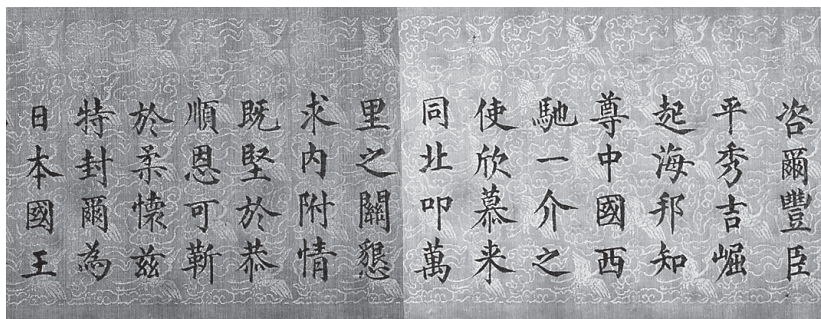 咨爾豐臣
平秀吉崛
起海邦知
尊中國西
馳一介之
使欣慕来
同北叩萬
里之關懇
求内附情
既堅於恭
順恩可靳
於柔懷茲
特封爾為
日本國王